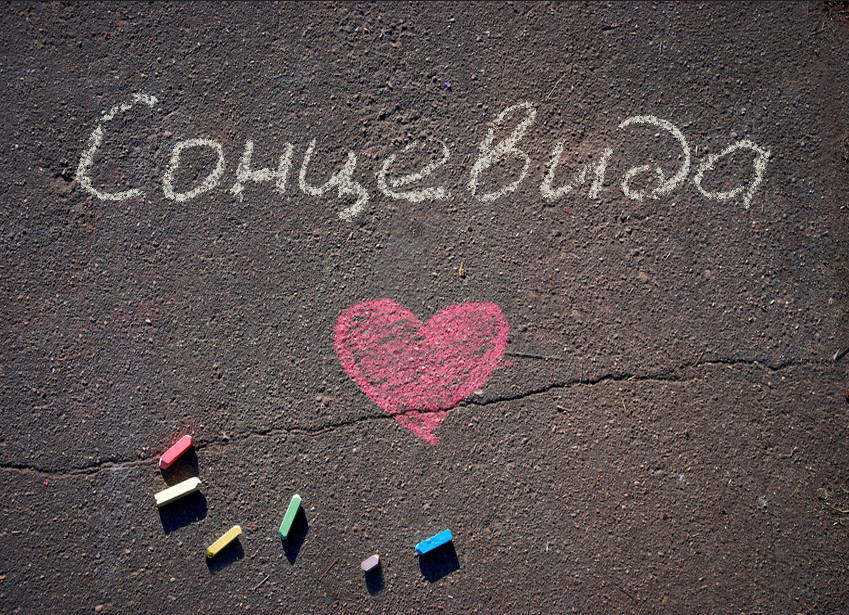 Сонцевида